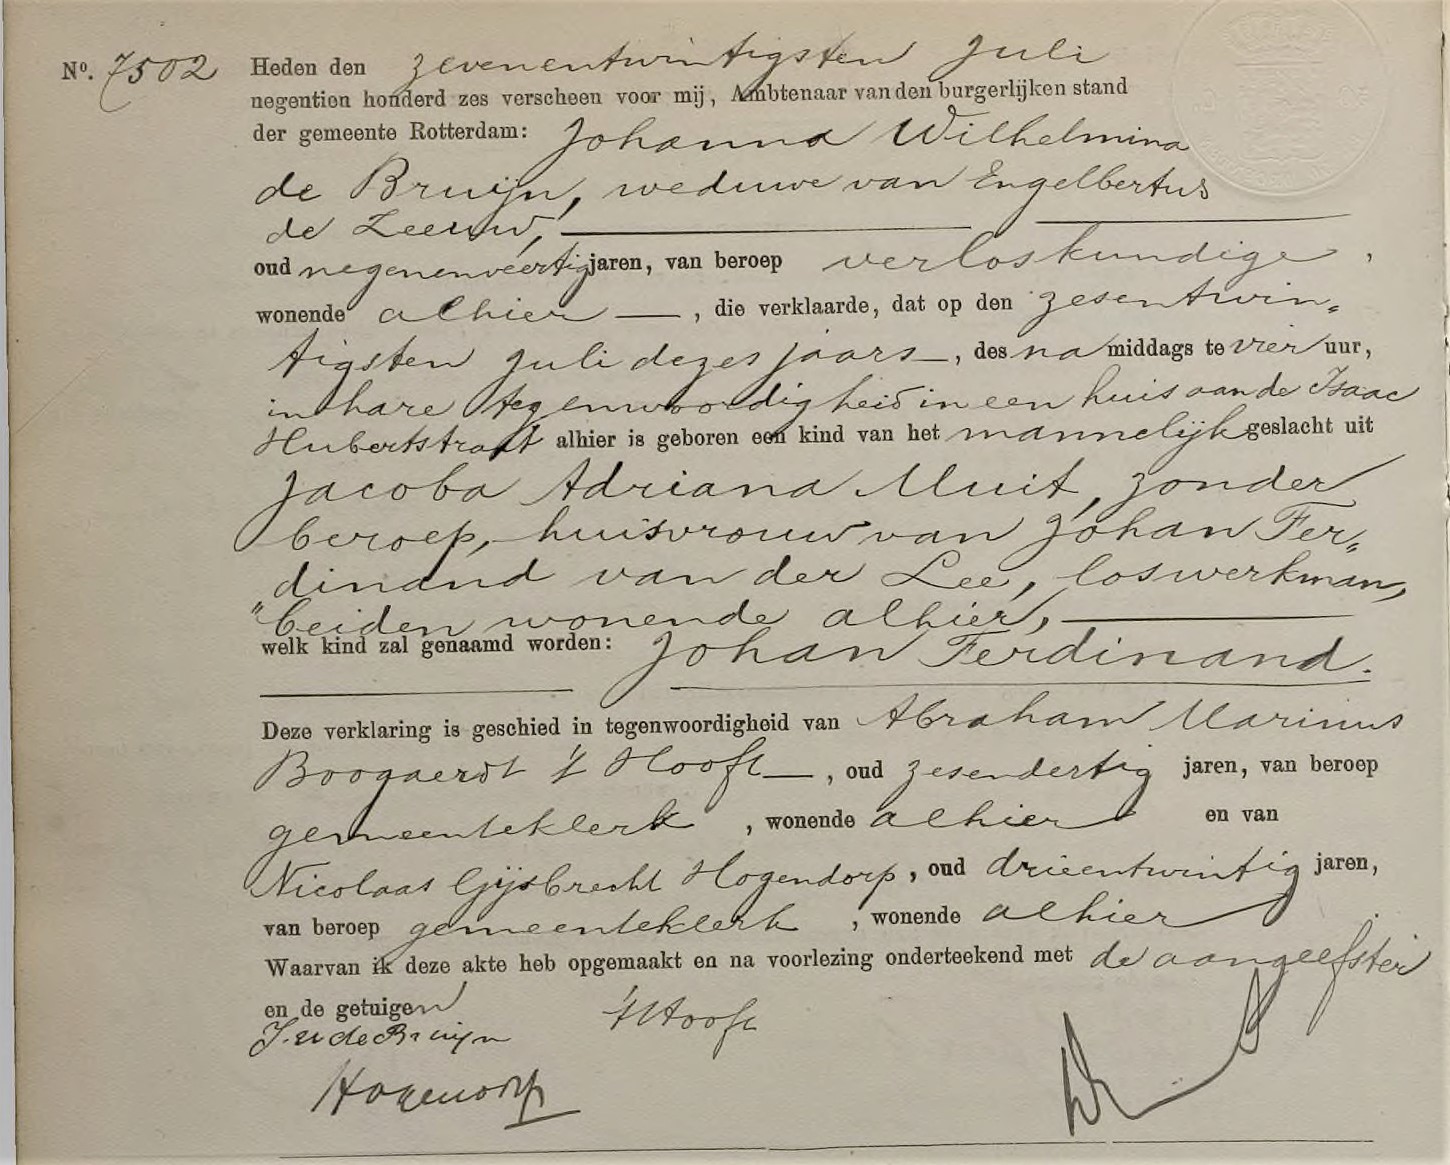 Nº. 7502 Heden den zevenentwintigsten Juli
negentien honderd zes verscheen voor mij, Ambtenaar van den burgerlijken stand
der gemeente Rotterdam: Johanna Wilhelmina
de Bruijn, weduwe van Engelbertus
de Leeuw,
oud negenenveertig jaren, van beroep verloskundige,
wonende alhier —, die verklaarde, dat op den zesentwin„
tigsten Juli dezes jaars —, des na middags te vier uur,
in hare tegenwoordigheid in een huis aan de Isaac
Hubertstraat alhier is geboren een kind van het mannelijk geslacht uit
Jacoba Adriana Muit, zonder
beroep, huisvrouw van Johan Fer„
dinand van der Lee, loswerkman,
"beiden wonende alhier,
welk kind zal genaamd worden: Johan Ferdinand.
Deze verklaring is geschied in tegenwoordigheid van Abraham Marinus
Boogaerdt 't Hooft —, oud zesendertig jaren, van beroep
gemeenteklerk, wonende alhier en van
Nicolaas Gijsbrecht Hogendorp, oud drieentwintig jaren,
van beroep gemeenteklerk, wonende alhier
Waarvan ik deze akte heb opgemaakt en na voorlezing onderteekend met de aangeefster
en de getuigen
J. W de Bruijn 't Hooft
Hogendorp